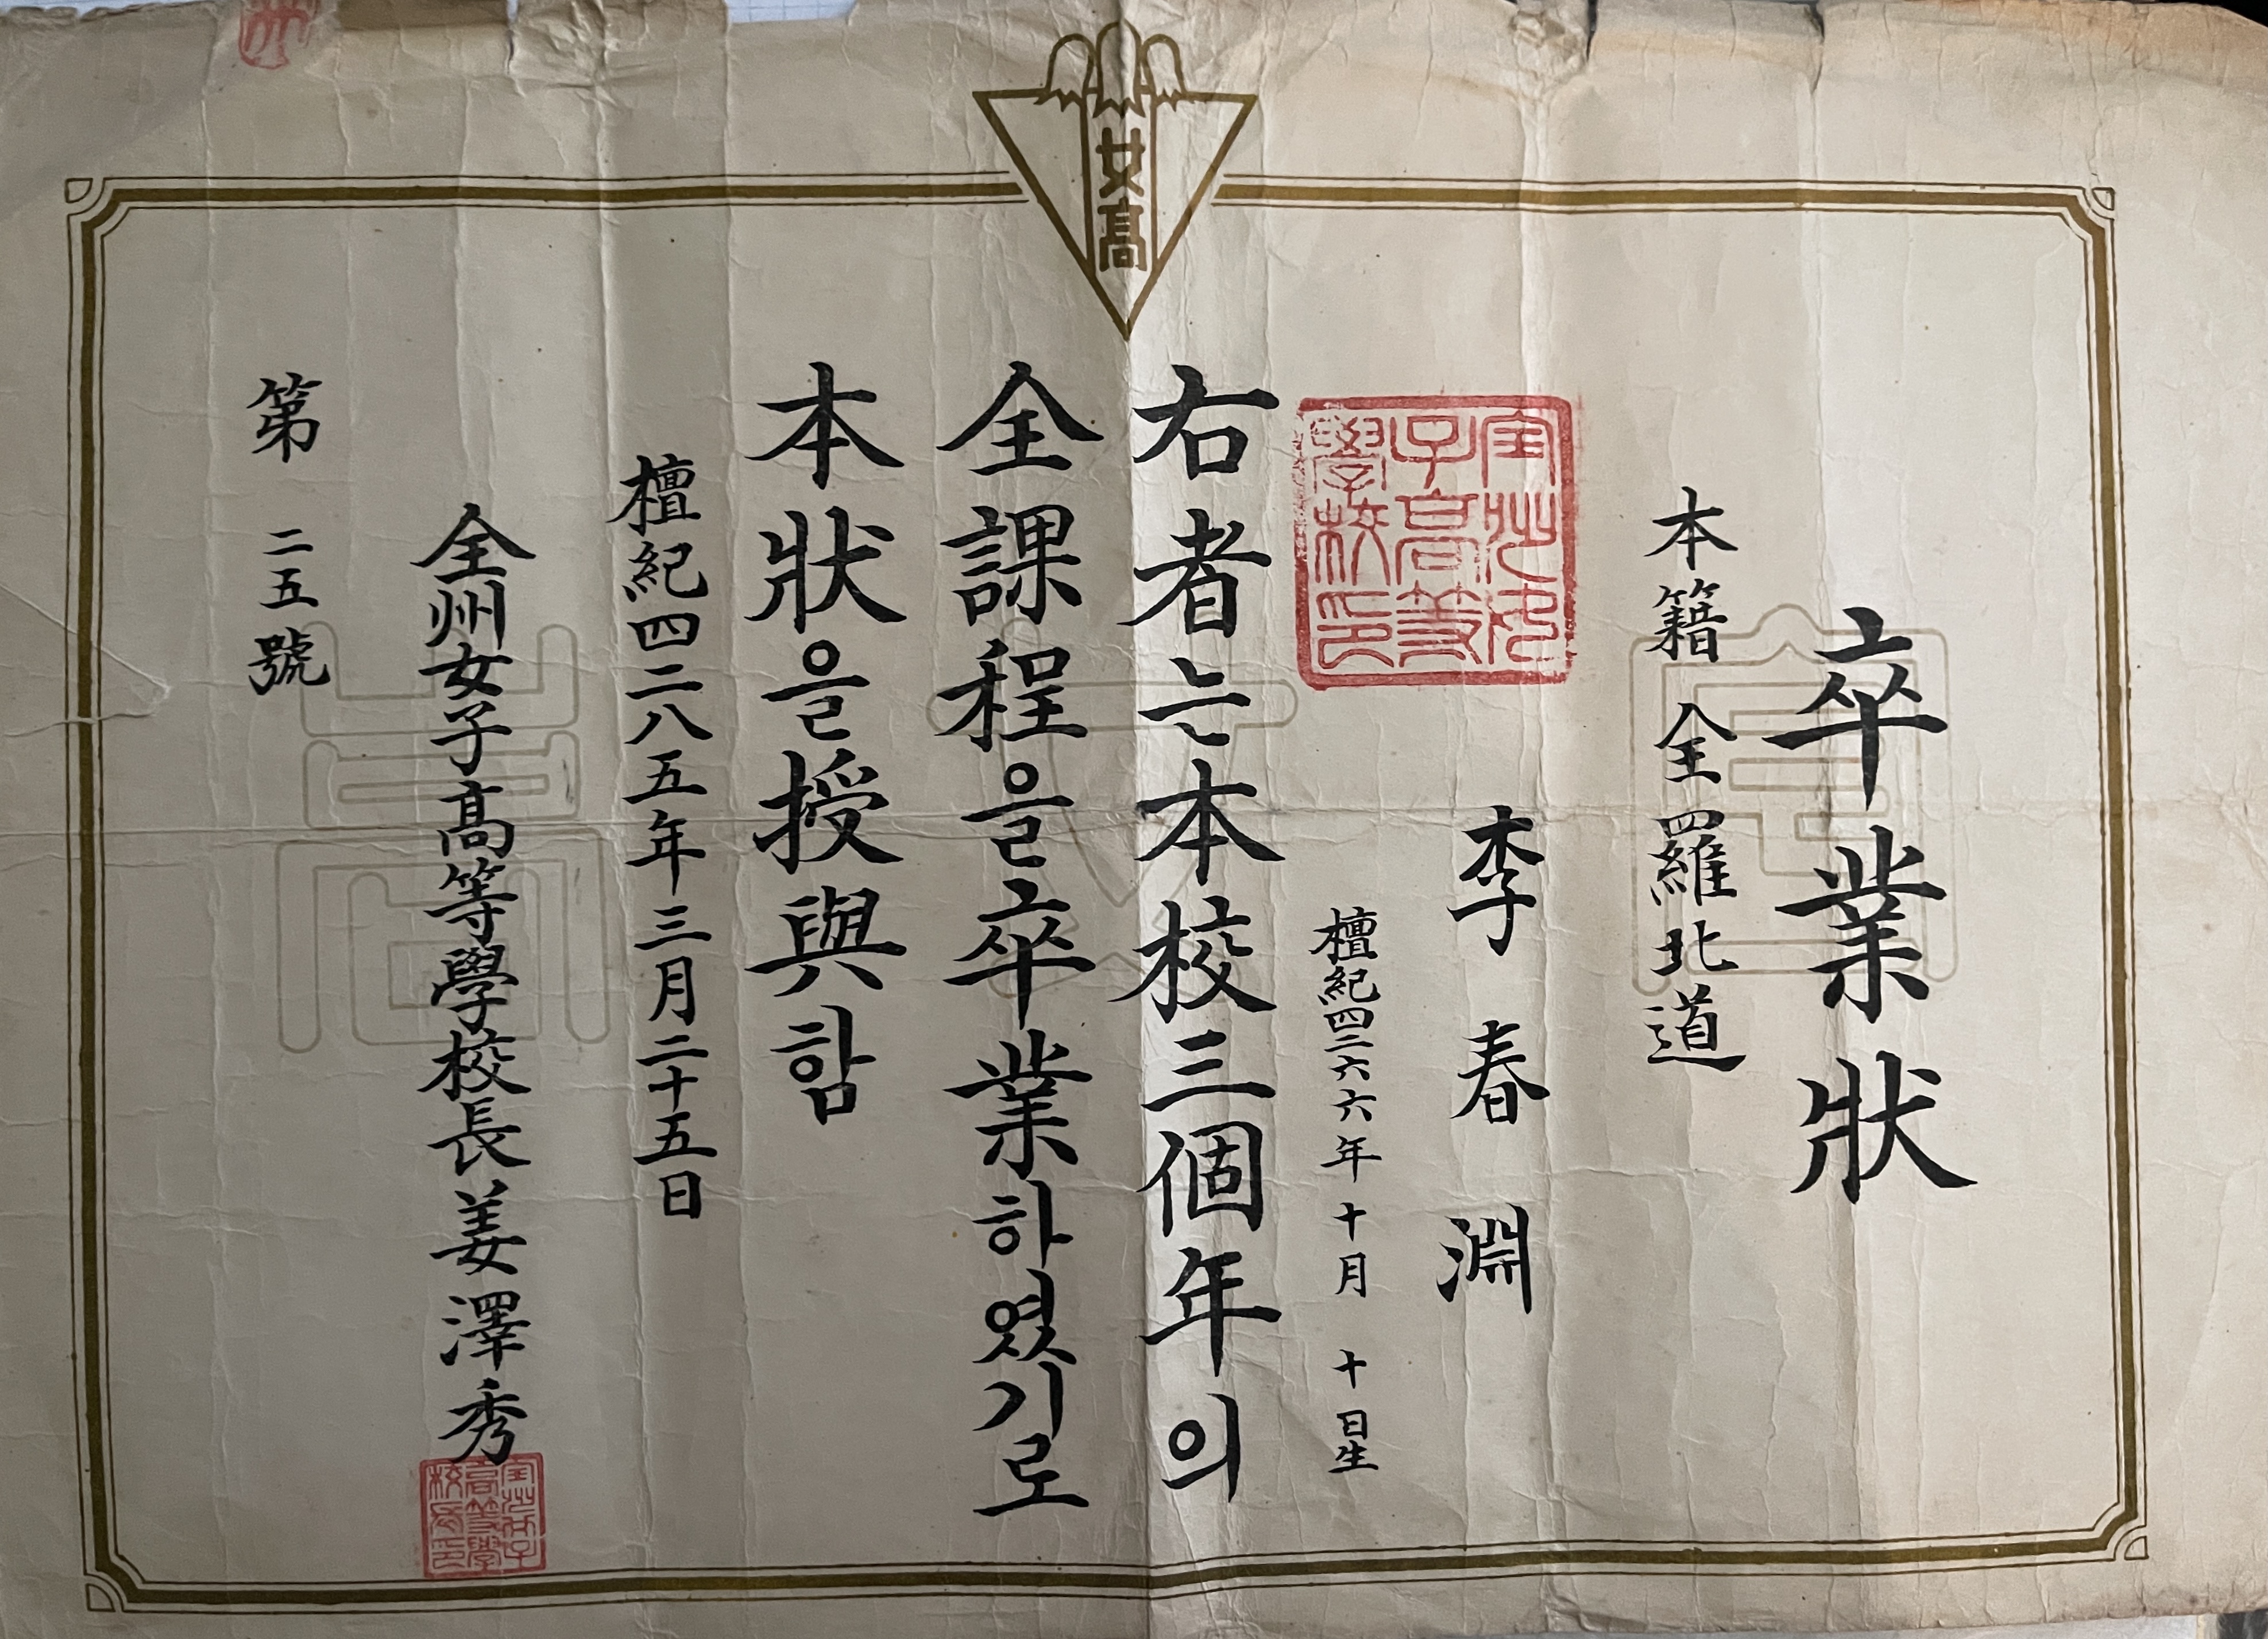 女高
卒業狀
本籍 全羅北道
李春淵
檀紀四二六六年十月十日生
全州女子高等學校印
右者는本校三個年의
全課程을卒業하였기로
本狀을授與함
檀紀四二八五年三月二十五日
全州女子高等學校長 姜澤秀
全州女子高等學校長印
第二五號